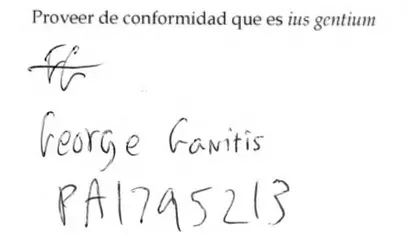 Proveer de conformidad que es ius gentium
George Ganitis
PA1795213